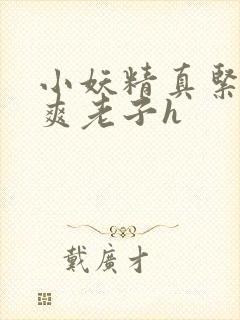 小妖精真紧
爽老子h
戴廣才